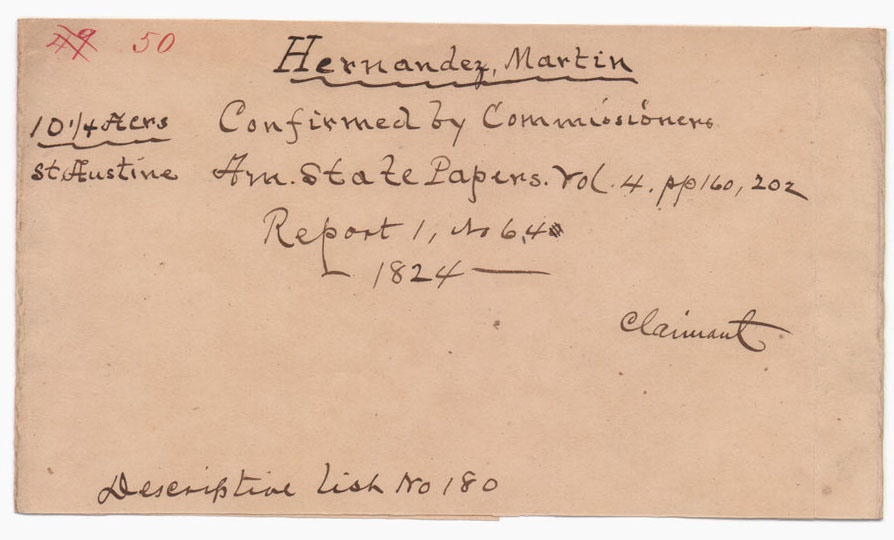 49 50
Hernandez, Martin
10 1/4 Acrs Confirmed by Commissioners
St. Austine Am. State Papers. Vol. 4. pp 160, 202
Report 1, No 64
— 1824 —
Claimant
Descriptive list No 180